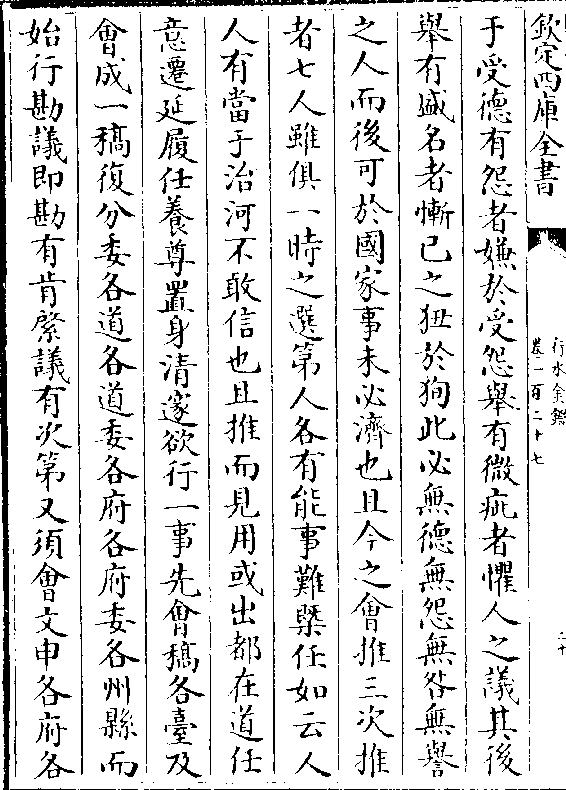 欽定四庫全書
行水金鑑
卷一百二十七
二十
于受德有怨者嫌於受怨舉有微疵者懼人之議其後
舉有盛名者慚已之狃於狥此必無德無怨無咎無譽
之人而後可於國家事未必濟也且今之會推三次推
者七人雖俱一時之選第人各有能事難槩任如云人
人有當于治河不敢信也且推而見用或出都在道任
意遷延履任養尊置身清邃欲行一事先會稿各臺及
會成一稿復分委各道各道委各府各府委各州縣而
始行勘議即勘有肯綮議有次第又須會文申各府各